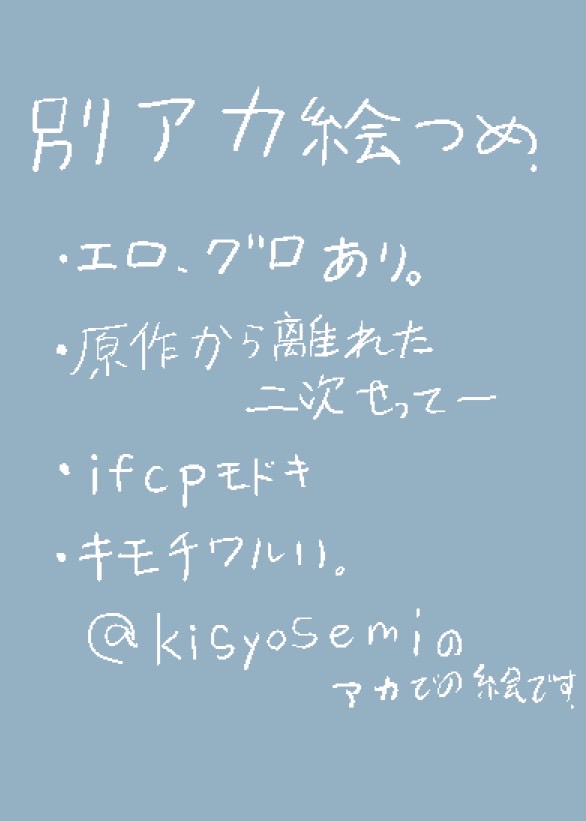 別アカ絵つめ.
・エロ、グロあり。
・原作から離れた
二次せってー
・ifcpモドキ
・キモチワルいり。
@kisyosemiの
アカでの絵です.